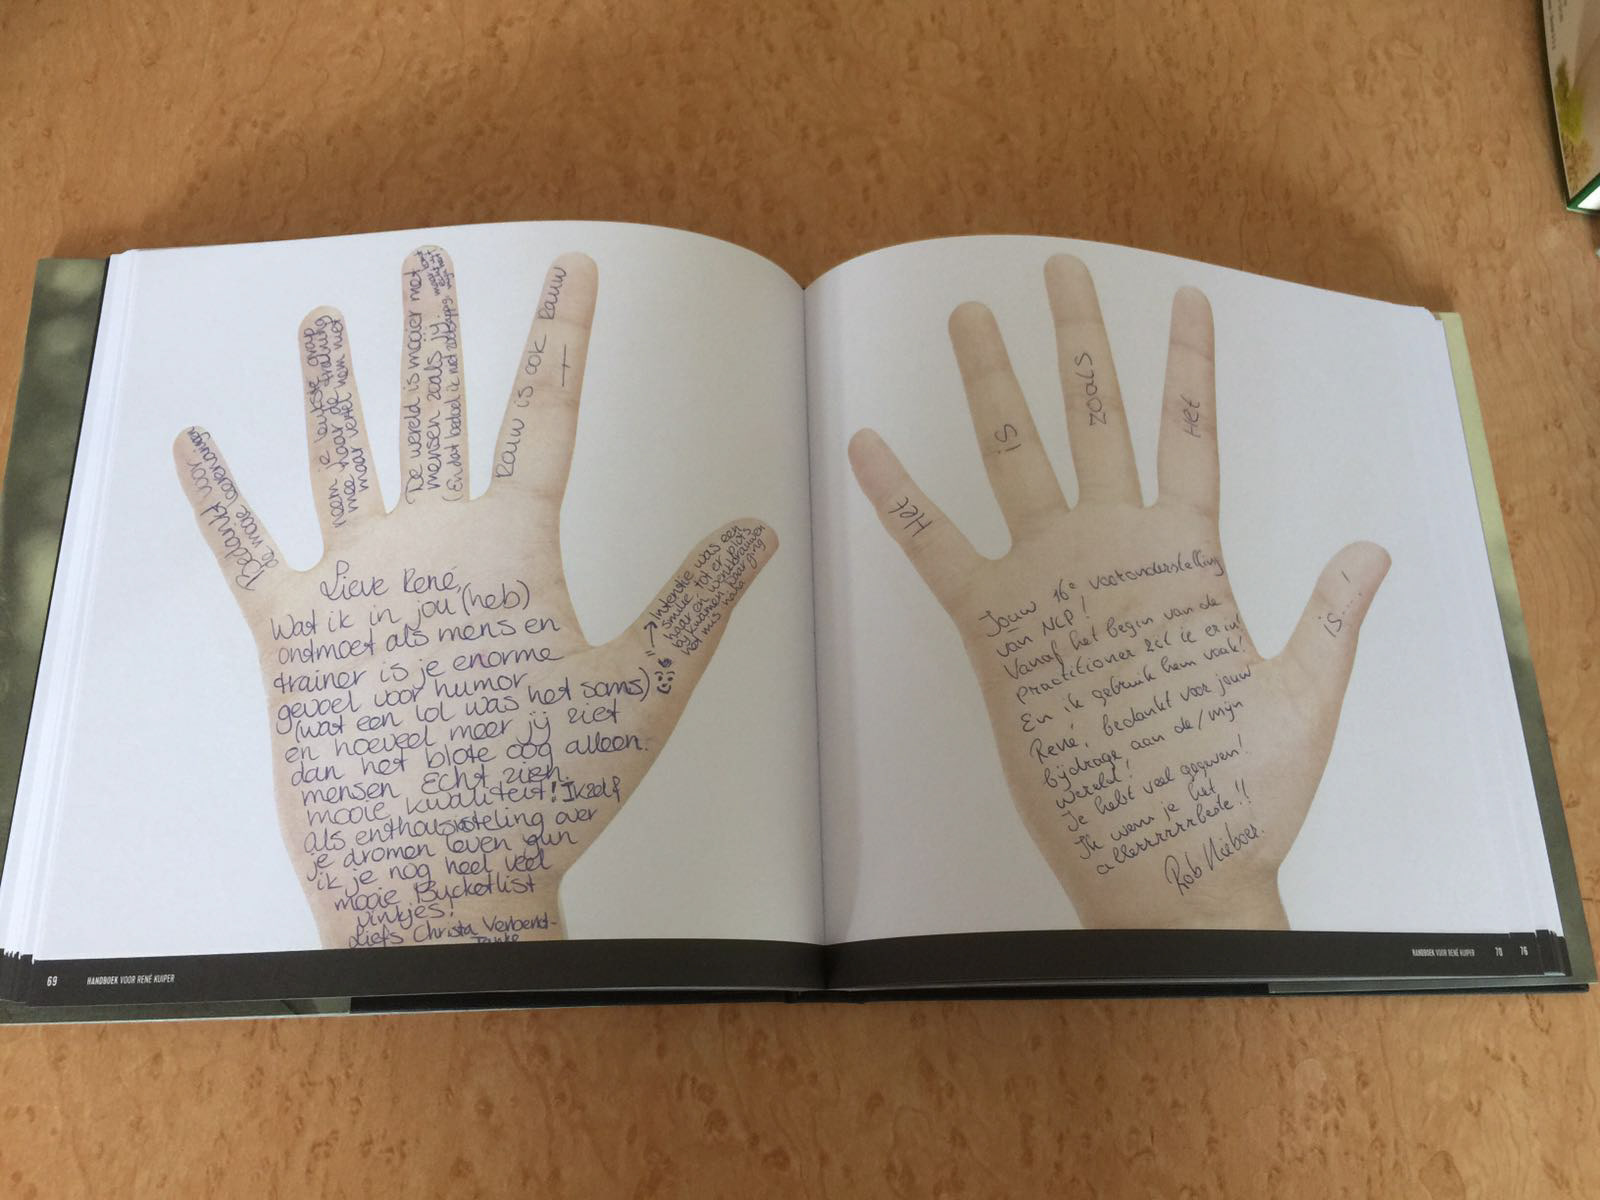 Bedankt voor
de mooie oefeningen
neem je leukste groep
mee naar de training
maar vertel hem niet
De wereld is mooier met
mensen zoals jij.
(En dat bedoel ik niet
Rauw is ook Rauw
Lieve René,
Wat ik in jou (heb)
ontmoet als mens en
trainer is je enorme
gevoel voor humor
(wat een lol was het soms)
en hoeveel meer jij ziet
dan het blote oog alleen.
mensen Echt zien.
mooie kwaliteit! Ikzelf
als enthousisteling over
je dromen leven gun
ik je nog heel veel
mooie Bucketlist
vinkjes!
Liefs Christa Verbend-
= → Intentie was een
smilie tot er plots
haar en wenkbrauwen
bijkwamen, waarna
het mis ging
69 HANDBOEK VOOR RENÉ KUIPER
Het
is
zoals
Het
is....!
Jouw 16e vooronderstelling
van NLP!
Vanaf het begin van de
practitioner zit ie er in!
En ik gebruik hem vaak!
René, bedankt voor jouw
bijdrage, aan de/mijn
wereld!
Je hebt veel gegeven!
Ik wens je het
allerrrrrrbeste!!
Rob Nieboer.
HANDBOEK VOOR RENÉ KUIPER 70 76